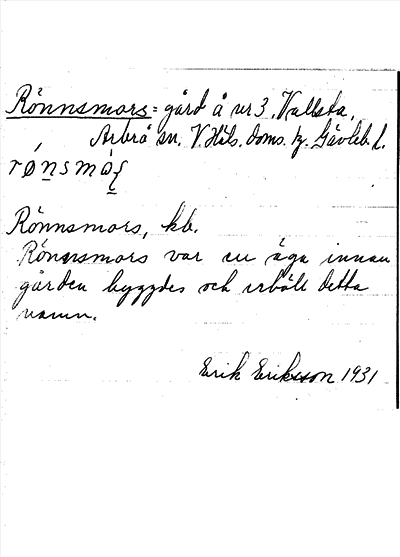 Rönnsmors = gård å nr 3, Vallsta,
Arbrå sn. V. Häls. doms. hg. Gävleb. l.
Rönnsmors, kb.
Rönnsmors var en äga innan
gården byggdes och erhöll detta
namn.
Erik Eriksson 1931